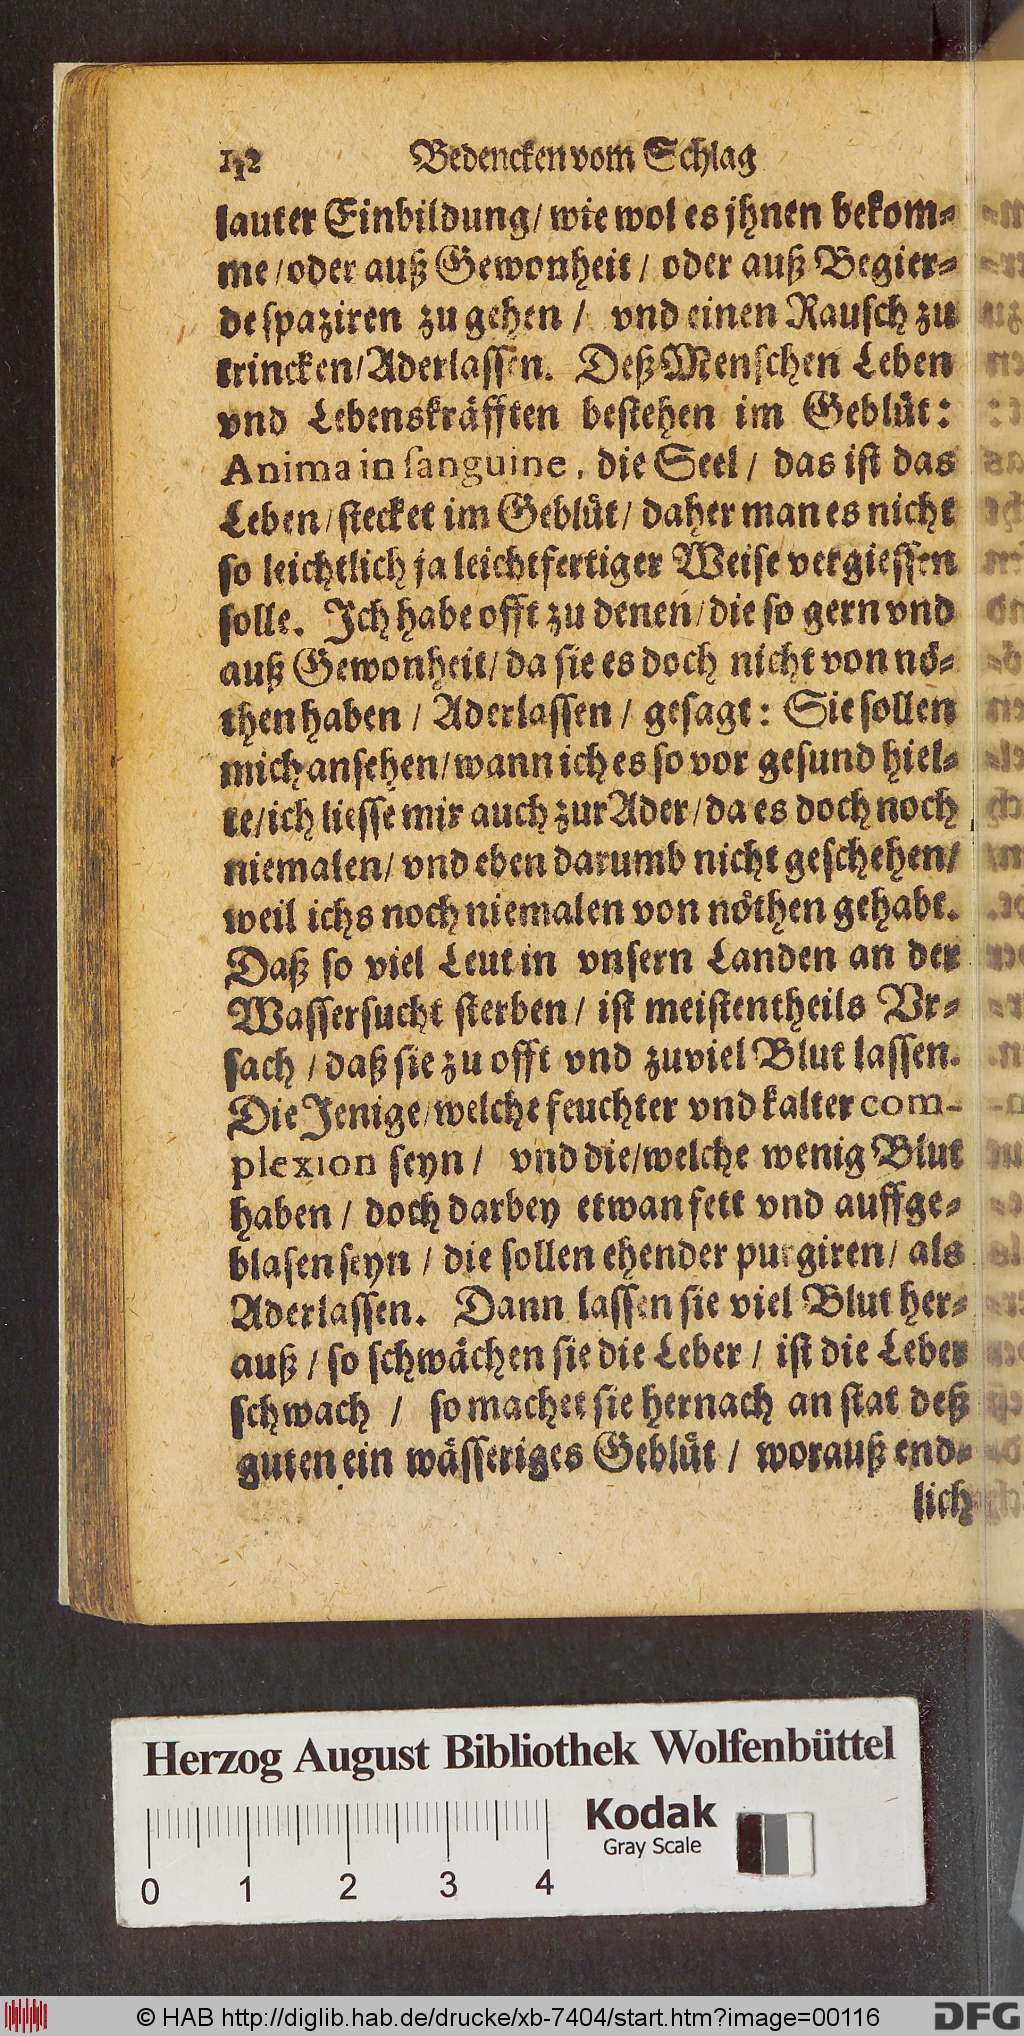 Bedencken vom Schlag
lauter Einbildung/ wie wol es jhnen bekom-
me/ oder auß Gewonheit/ oder auß Begier-
de spaziren zu gehen/ vnd einen Rausch zu
trincken/ Aderlassen. Deß Menschen Leben
vnd Lebenskräfften bestehen im Geblüt:
Anima in sanguine, die Seel/ das ist das
Leben/ stecket im Geblüt/ daher man es nicht
so leichtlich ja leichtfertiger Weise vergiessen
solle. Ich habe offt zu denen/ die so gern vnd
auß Gewonheit/ da sie es doch nicht von nö-
then haben/ Aderlassen/ gesagt: Sie sollen
mich ansehen/ wann ich es so vor gesund hiel-
te/ ich liesse mir auch zur Ader/ da es doch noch
niemalen/ vnd eben darumb nicht geschehen/
weil ichs noch niemalen von nöthen gehabt.
Daß so viel Leut in vnsern Landen an der
Wassersucht sterben/ ist meistentheils Vr-
sach/ daß sie zu offt vnd zuviel Blut lassen.
Die Jenige/ welche feuchter vnd kalter com-
plexion seyn/ vnd die/ welche wenig Blut
haben/ doch darbey etwan fett vnd auffge-
blasen seyn/ die sollen ehender purgiren/ als
Aderlassen. Dann lassen sie viel Blut her-
auß/ so schwächen sie die Leber/ ist die Leber
schwach/ so machet sie hernach an stat deß
guten ein wässeriges Geblüt/ worauß end-
lich
Herzog August Bibliothek Wolfenbüttel
Kodak
Gray Scale
0 1 2 3 4
© HAB http://diglib.hab.de/drucke/xb-7404/start.htm?image=00116
DFG